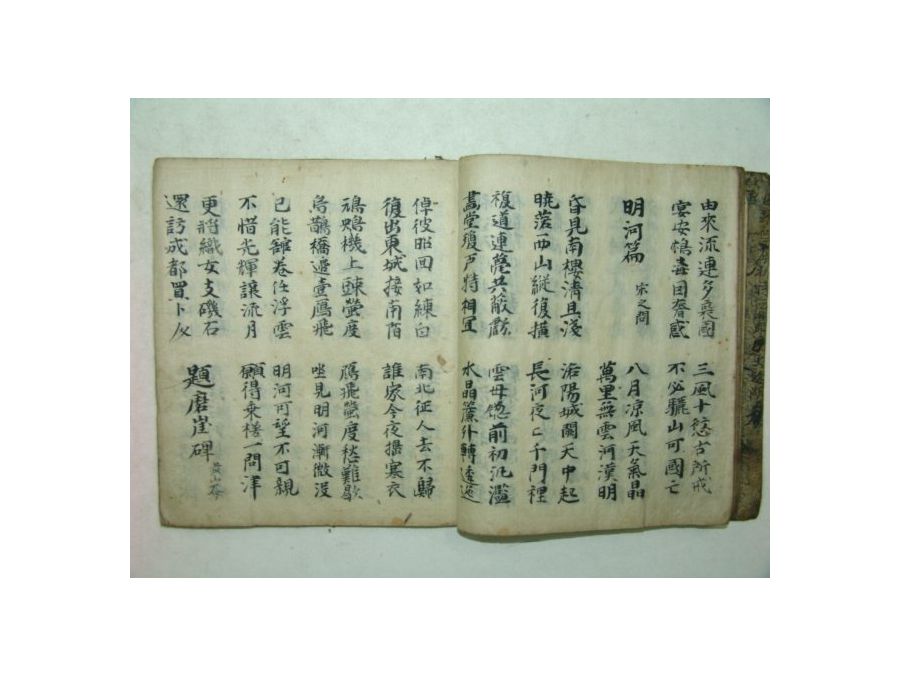 由來流連多喪國
宴安鴆毒因奢惑
三風十愆古所戒
不必驪山可國亡
明河篇
宋之問
八月凉風天氣晶
萬里無雲河漢明
昏見南樓清且淺
曉落西山縱復橫
洛陽城闕天中起
長河夜〻千門裡
複道連甍共蔽虧
畵堂瓊戶特相冝
雲母帳前初汎濫
水晶簾外轉逶迤
倬彼昭回如練白
復出東城接南陌
南北征人去不歸
誰家今夜搗寒衣
機上踈螢度
烏鵲橋邊壹鴈飛
鴈飛螢度愁難歇
坐見明河漸微沒
已能舒卷任浮雲
不惜光輝讓流月
明河可望不可親
願得乘槎一問津
更將織女支磯石
還訪成都買卜人
題磨崖碑
黃山谷